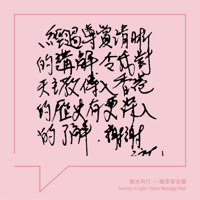 經過導賞清晰
的講解，令我對
天主教傳入香港
的歷史有更深入
的了解，謝謝
榮光同行 － 觀眾留言牆
Journey in Light: Visitor Message Wall